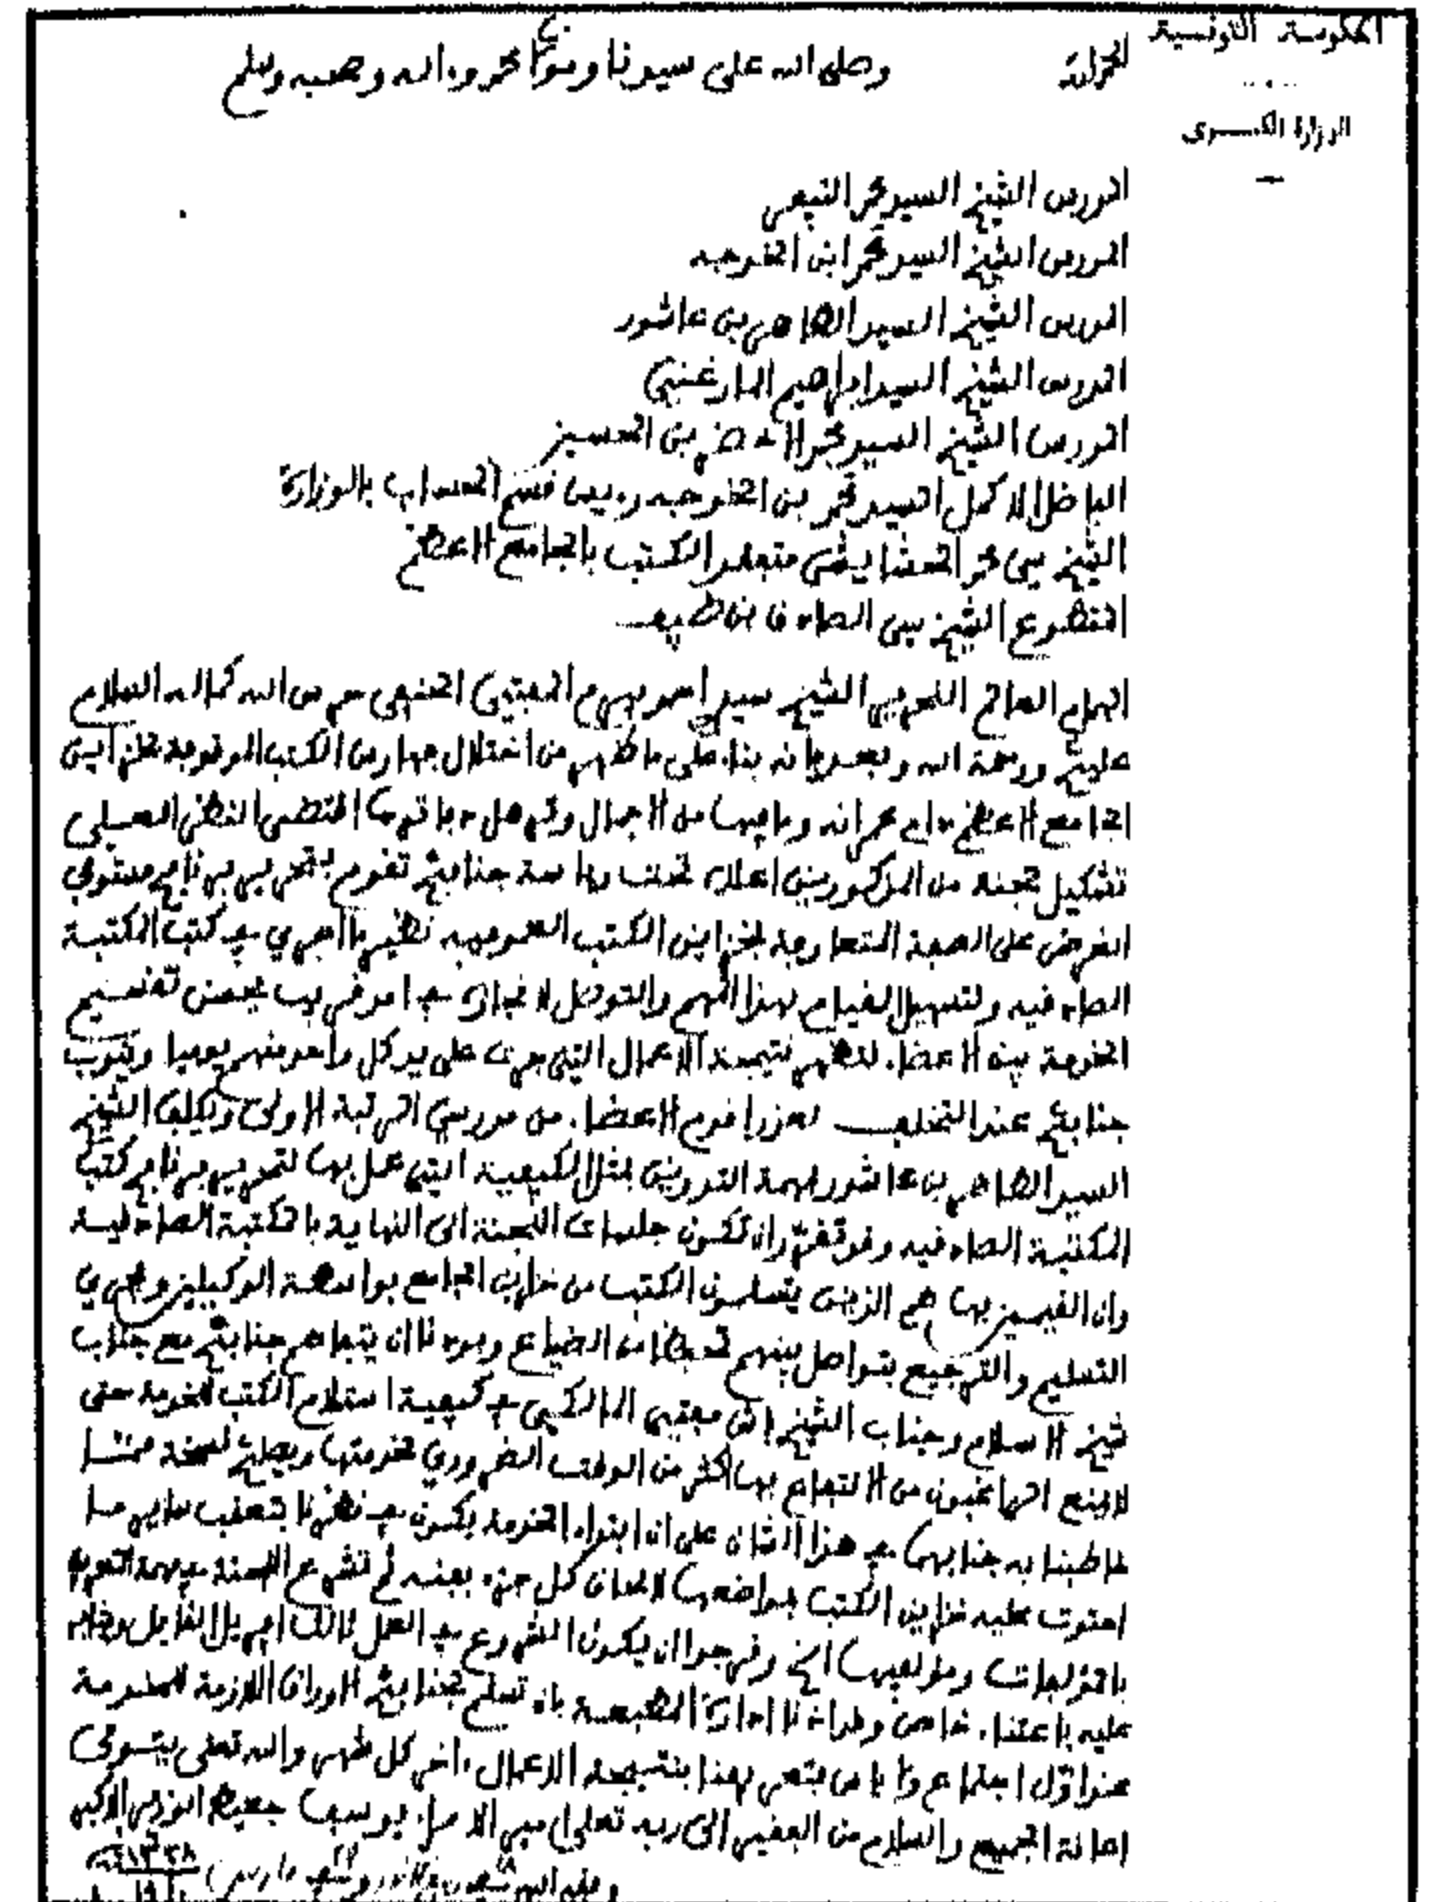 الحكومة التونسية
الوزارة الكبرى
الحمد لله
وصلى الله على سيدنا ومولانا محمد وءاله وصحبه وسلم
المدرس الشيخ السيد محمد النيفر
المدرس الشيخ السيد محمد ابن الخوجه
المدرس الشيخ السيد الطاهر بن عاشور
المدرس الشيخ السيد ابراهيم المارغني
المدرس الشيخ السيد محمد الاخضر بن الحسين
الفاضل الاكمل السيد محمد بن الخوجه رءيس قسم الحساب بالوزارة
الشيخ سي محمد الحشايشي متفقد الكتب بالجامع الاعظم
المتطوع الشيخ سي الصادق بن
الهمام العالم النحرير الشيخ سيدي احمد بيرم المفتي الحنفي حرس الله كماله السلام
عليكم ورحمة الله وبعد فانه بناء على ما ظهر من اختلال فهارس الكتب الموقوفة بخزاين
الجامع الاعظم دام عمرانه وما فيها من الاجمال وترهل دفاترها اقتضى النظر العملي
تشكيل لجنة من المذكورين اعلاه تحت رءاسة جنابكم تقوم بتحرير برنامج مستوفي
الغرض على الصفة المتعارفة بخزاين الكتب العموميه نظير ما اجري في كتب المكتبة
الصادقيه ولتسهيل القيام بهذا المهم والتوصل لانجازه في امد قريب يحسن تقسيم
الخدمة بين الاعضاء لتظهر نتيجة الاعمال التي جرت على يد كل واحد منهم يوميا وينوب
جنابكم عند التخلف لعذر اقدم الاعضاء من مدرسي الرتبة الاولى ويكلف الشيخ
السيد الطاهر بن عاشور بمهمة التدوين بمثل الكيفية التي عمل بها لتحرير برنامج كتب
المكتبة الصادقيه وقد تقرر ان تكون جلسات اللجنة الى النهاية بالمكتبة الصادقية
وان القيمين بها هم الذين يتسلمون الكتب من خزاين الجامع بواسطة الوكيلين ويجري
التسليم والترجيع بتواصل بينهم تحفظا من الضياع وبودنا ان يتفاهم جنابكم مع جناب
شيخ الاسلام وجناب الشيخ باش مفتي المالكي في كيفية استلام الكتب للخدمة حتى
لا يمنع الراغبون من الانتفاع بها اكثر من الوقت الضروري لخدمتها ويصلكم نسخة مما
خاطبنا به جنابهما في هذا الشان على ان ابتداء الخدمة يكون في نظرنا بتعقب ساير ما
احتوت عليه خزاين الكتب بمواضعها لالحاق كل جزء بفنه ثم تشرع اللجنة في مهمة التعريف
بالمؤلفات ومؤلفيها الخ ونرجو ان يكون الشروع في العمل ثالث ابريل القابل
عليه باعتناء خاص وقد اذنا ادارة المطبعة بان تسلم لجنابكم الاوراق اللازمة للخدمة
عند اول اجتماع ولا باس بتعريفنا بنتيجة الاعمال ءاخر كل شهر والله تعلى يتولى
اعانة الجميع والسلام من الفقير الى ربه تعلى امير الامراء يوسف جعيط الوزير الاكبر